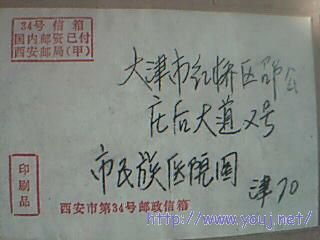 34号信箱
国内邮资已付
西安邮局(甲)
天津市红桥区邵公
庄后大道又号
市民族医院
津70
印刷品
西安市第34号邮政信箱
http://www.youj.net/